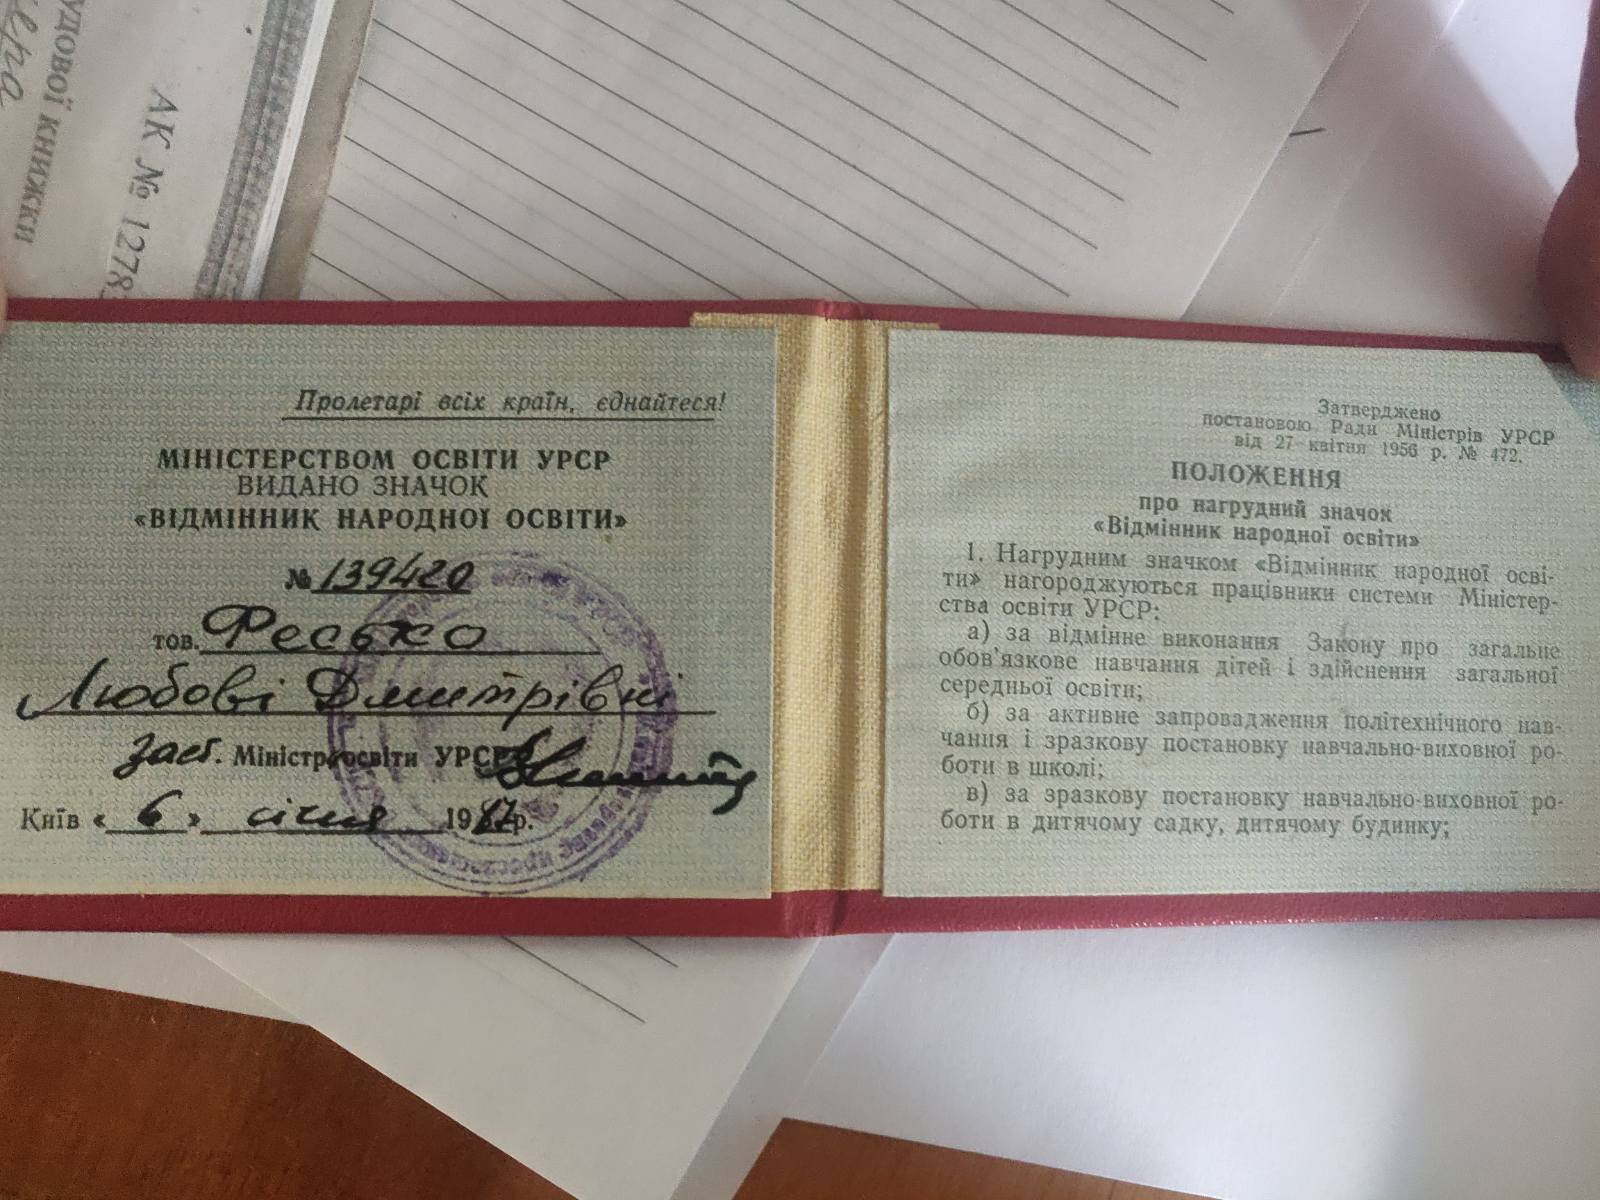 УДОВОЇ КНИЖКИ
АК № 1278
Пролетарі всіх країн, єднайтеся!
МІНІСТЕРСТВОМ ОСВІТИ УРСР
ВИДАНО ЗНАЧОК
«ВІДМІННИК НАРОДНОЇ ОСВІТИ»
№ 139420
тов. Фесько
Любові Дмитрівні
заст. Міністр освіти УРСР
Київ «6» січня 1987 р.
Затверджено
постановою Ради Міністрів УРСР
від 27 квітня 1956 р. № 472.
ПОЛОЖЕННЯ
про нагрудний значок
«Відмінник народної освіти»
1. Нагрудним значком «Відмінник народної осві-
ти» нагороджуються працівники системи Міністер-
ства освіти УРСР:
а) за відмінне виконання Закону про загальне
обов'язкове навчання дітей і здійснення загальної
середньої освіти;
б) за активне запровадження політехнічного нав-
чання і зразкову постановку навчально-виховної ро-
боти в школі;
в) за зразкову постановку навчально-виховної ро-
боти в дитячому садку, дитячому будинку;